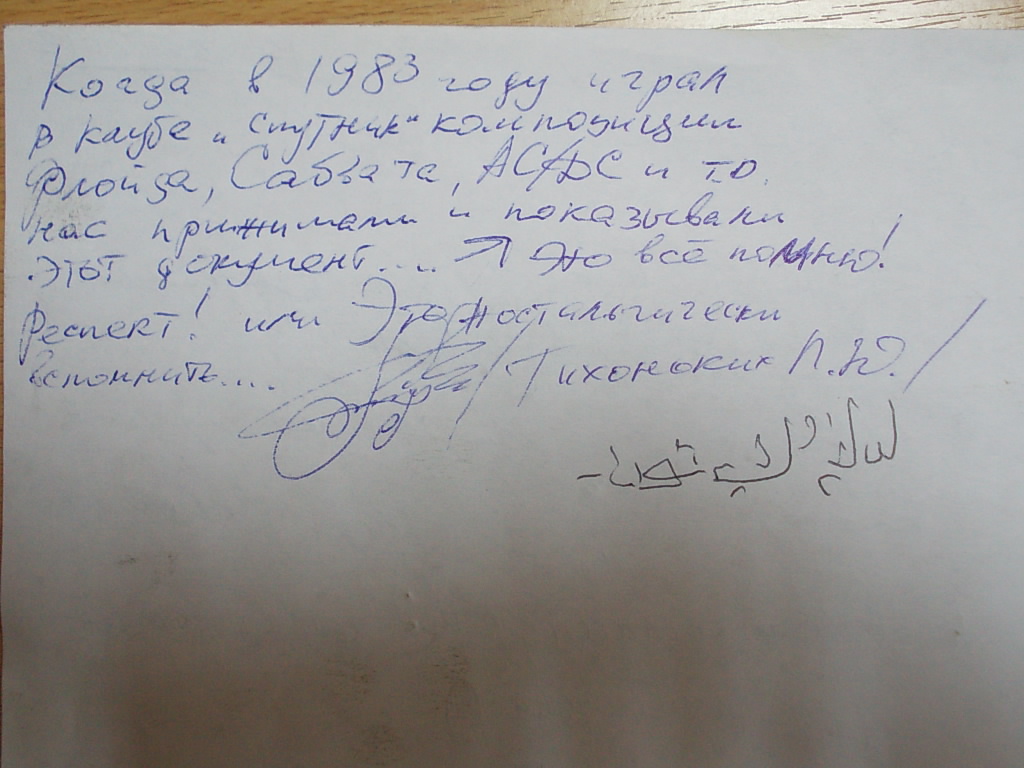 Когда в 1983 году играл
в клубе „Спутник" композиции
Флойда, Сабвата, AC/DC и т.д.
нас прижимали и показывали
этот документ.... → Это всё помню!
Респект! или Это ностальгически
вспомнить....
/ Тихоноких П.Ю. /